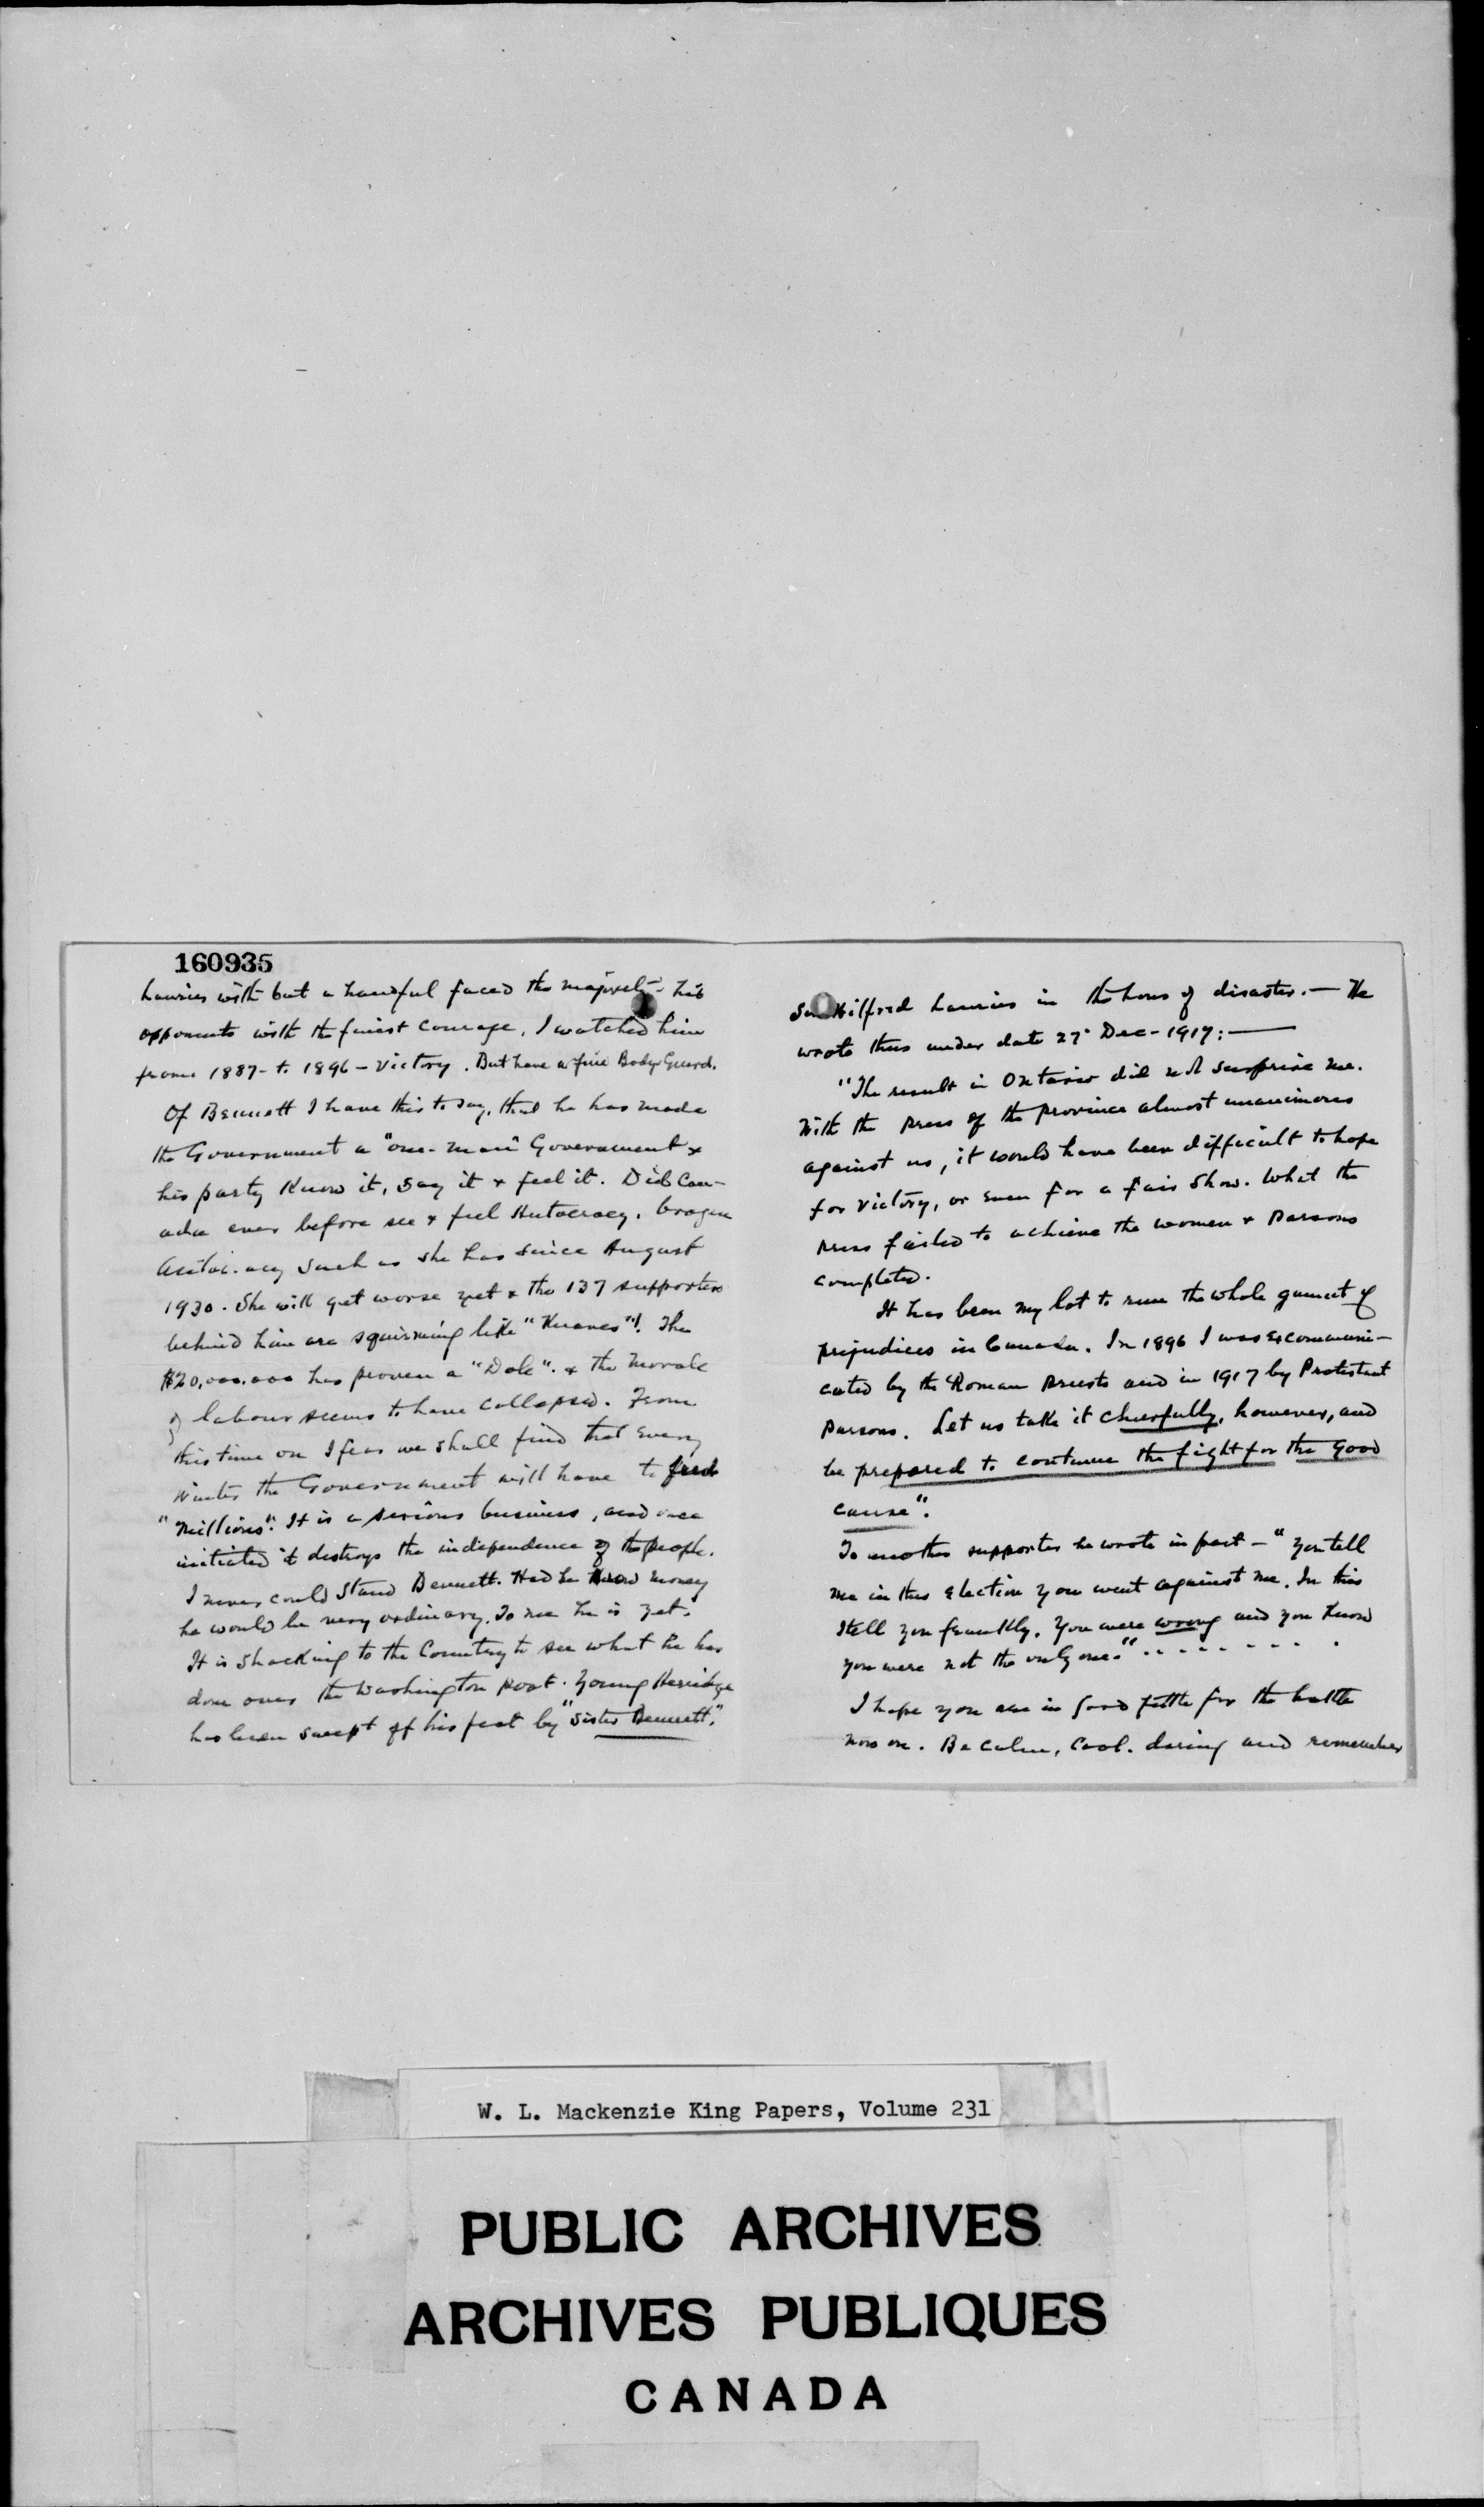 160935
Laurier with but a handful faced the majority - his
opponents with the finest courage. I watched him
from 1887 - to 1896 - Victory. But have a fine Body Guard.
Of Bennett I have this to say, that he has made
the Government a "one-man" Government &
his party know it, say it & feel it. Did Can-
ada ever before see & feel Autocracy, brazen
autoc.acy such as she has since August
1930. She will get worse yet & the 137 supporters
behind him are squirming like "Knaves"! The
$20,000.000 has proven a "Dole". & the morale
of labour seems to have collapsed. From
this time on I fear we shall find that every
Winter the Government will have to find
"Millions". It is a serious business, and once
initiated it destroys the independence of the people.
I never could stand Bennett. Had he money
he would be very ordinary. To me he is yet.
It is shocking to the Country to see what he has
done over the Washington post. Young Herridge
has been swept off his feet by "Sister Bennett."
Sir Wilfred Laurier in the hour of disaster. — He
wrote thus under date 27 Dec - 1917: —
"The result in Ontario did not surprise me.
With the press of the province almost unanimous
against us, it would have been difficult to hope
for victory, or even for a fair show. What the
press failed to achieve the women & parsons
completed.
It has been my lot to run the whole gamut of
prejudices in Canada. In 1896 I was excommuni-
cated by the Roman priests and in 1917 by Protestant
parsons. Let us take it cheerfully, however, and
be prepared to continue the fight for the good
cause".
To another supporter he wrote in part - "You tell
me in this election you went against me. In this
I tell you frankly. You were wrong and you know
you were not the only one." . . . . . . . . .
I hope you are in good fettle for the battle
now on. Be calm, cool. daring and remember
W. L. Mackenzie King Papers, Volume 231
PUBLIC ARCHIVES
ARCHIVES PUBLIQUES
CANADA